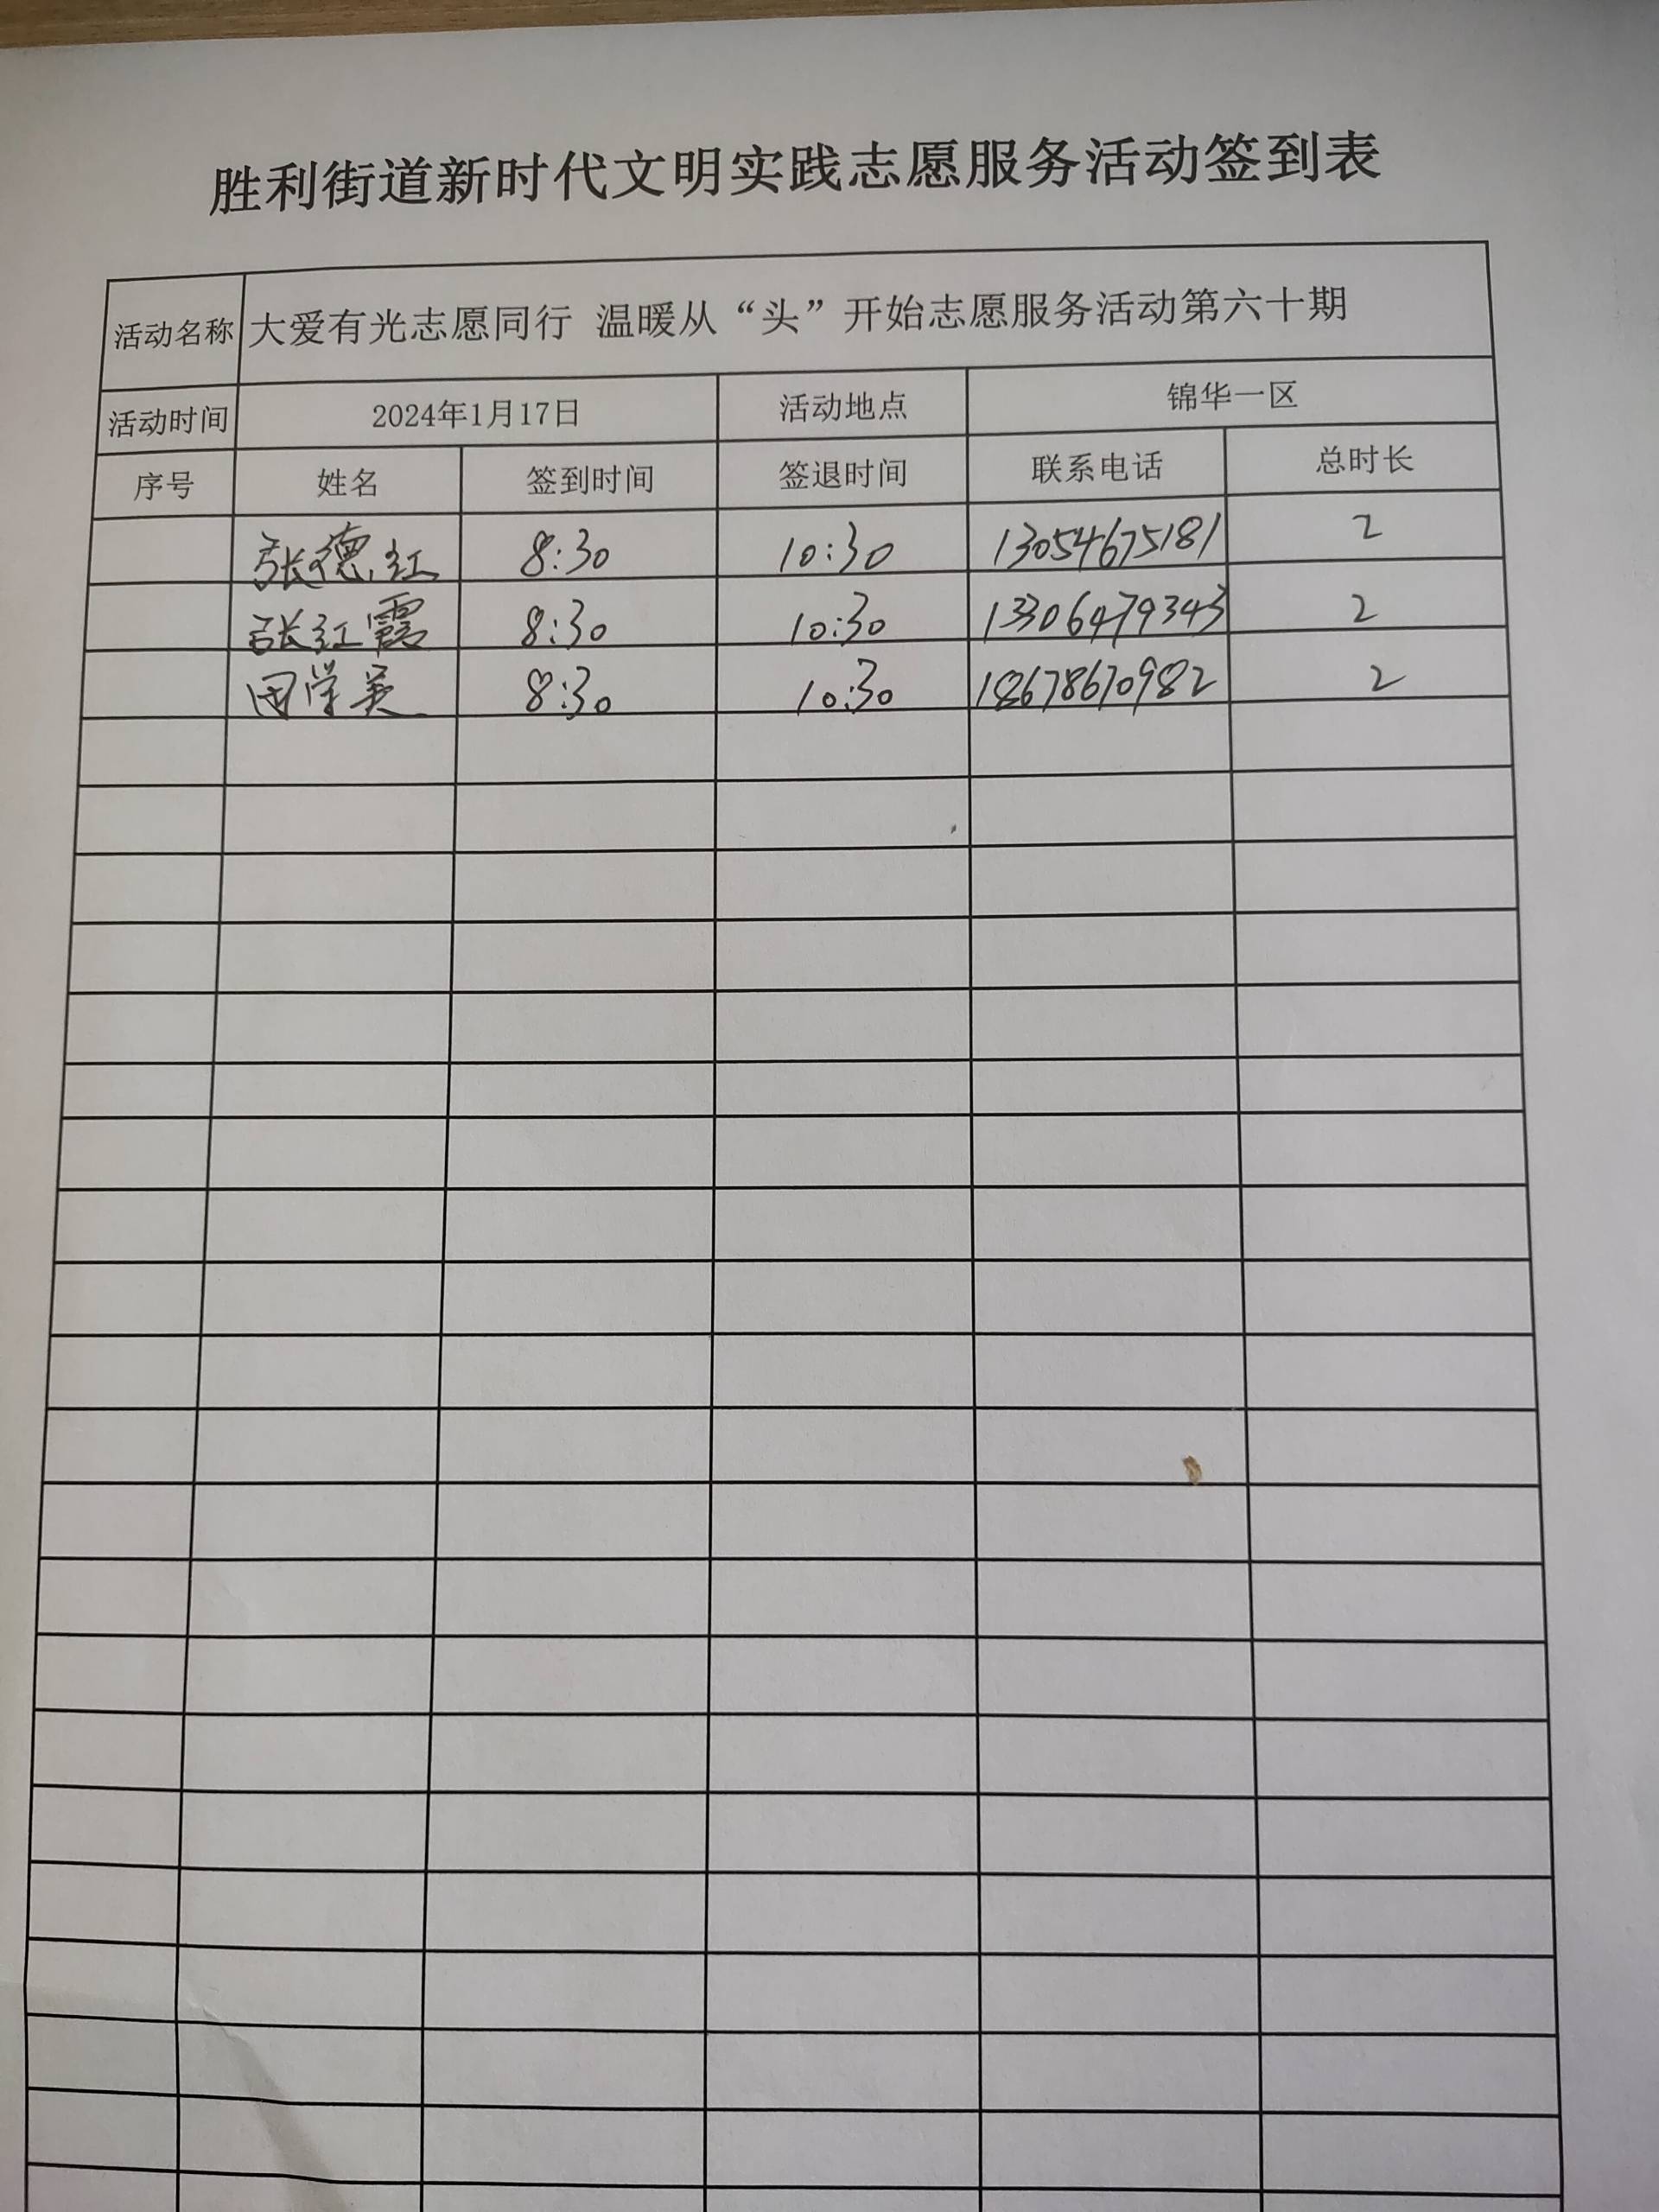 胜利街道新时代文明实践志愿服务活动签到表
活动名称 大爱有光志愿同行 温暖从“头”开始志愿服务活动第六十期
活动时间 2024年1月17日 活动地点 锦华一区
序号 姓名 签到时间 签退时间 联系电话 总时长
张德红 8:30 10:30 13054675181 2
张红霞 8:30 10:30 13306479343 2
田学英 8:30 10:30 18678670982 2